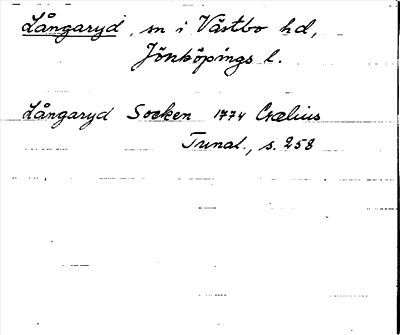 Långaryd, sn i Västbo hd,
Jönköpings l.
Långaryd Socken 1774 Crælius
Tunal., s. 258